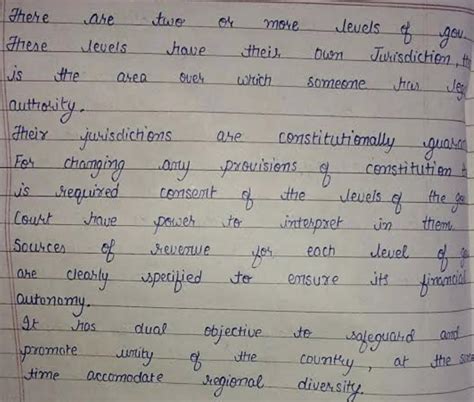 There are two or more levels of gov.
These levels have their own Jurisdiction, th
is the area over which someone has leg
authority.
Their jurisdictions are constitutionally guaran
For changing any provisions of constitution
is required consent of the levels of the go
Court have power to interpret in them.
Sources of revenue for each level of go
are clearly specified to ensure its financial
autonomy.
It has dual objective to safeguard and
promote unity of the country, at the same
time accomodate regional diversity.